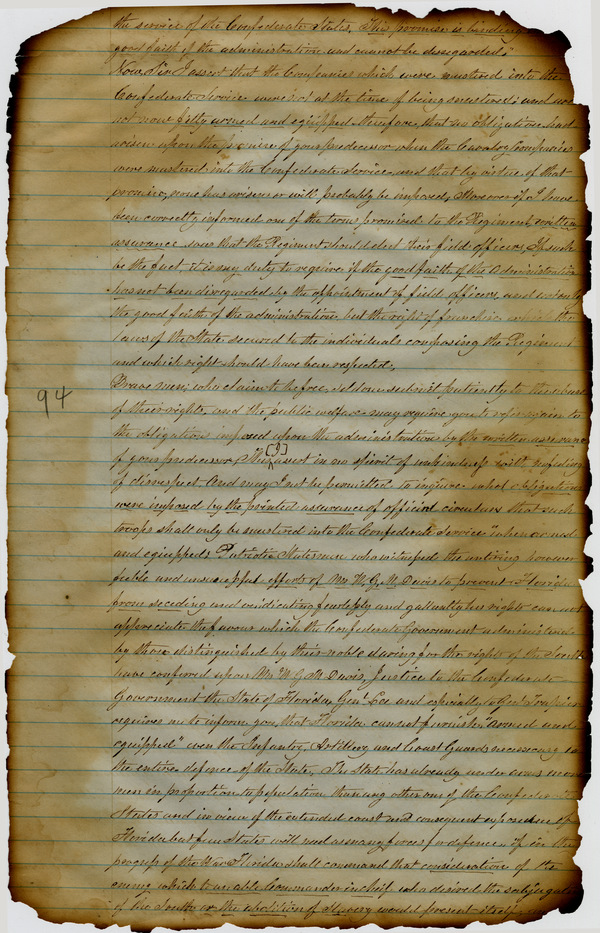 the service of the Confederate States, This promise is binding
good faith of the administration and cannot be disregarded."
Now, Sir, I assert that the Companies which were mustered into the
Confederate Service were not at the time of being mustered, and are
not now fully armed and equipped, therefore, that no obligation had
arisen upon the promise of your predecessor when the Cavalry Companies
were mustered into the Confederate service, and that by virtue of that
promise, none has arisen or will probably be imposed, Moreover if I have
been correctly informed one of the terms promised to the Regiment, written
assurance was that the Regiment should elect their field officers, If such
be the fact, it is my duty to enquire if the good faith of the Administration
has not been disregarded by the appointment of field officers, and not only
the good faith of the administration, but the right of franchise which the
laws of the State secured to the individuals composing the Regiment
and which right should have been respected,
Brave men, who claim to be free, seldom submit patiently to the abuse
of their rights, and the public welfare may require you to refer again to
the obligations imposed upon the administration by the written assurance
of your predecessor, This [I] assert in no spirit of unkindness with no feeling
of disrespect, And may I not be permitted to inquire what obligations
were imposed by the printed assurance of official circulars that such
troops shall only be mustered into the Confederate Service "when armed
and equipped." Patriotic Statesmen who witnessed the untiring however
feeble and unsuccessful efforts of Mr. W. G. M. Davis to prevent Florida
from seceding and vindicating fearlessly and gallantly her rights cannot
appreciate the favours which the Confederate Government administered
by those distinguished by their noble daring for the rights of the South
have conferred upon Mr. W. G. M. Davis, Justice to the Confederate
Government, the State of Florida, Genl. Lee and especially to Genl. Trapier
requires me to inform you, that Florida cannot furnish, "armed and
equipped" even the Infantry, Artillery, and Coast Guards necessary to
the entire defence of the State, The State has already under arms more
men in proportion to population than any other one of the Confederate
States and in view of the extended coast and consequent exposure of
Florida but few States will need as many forces for defence, if in the
progress of the War Florida shall command that consideration of the
enemy which to an able Commander in chief who desired the subjugation
of the South or the abolition of Slavery would present itself,
94